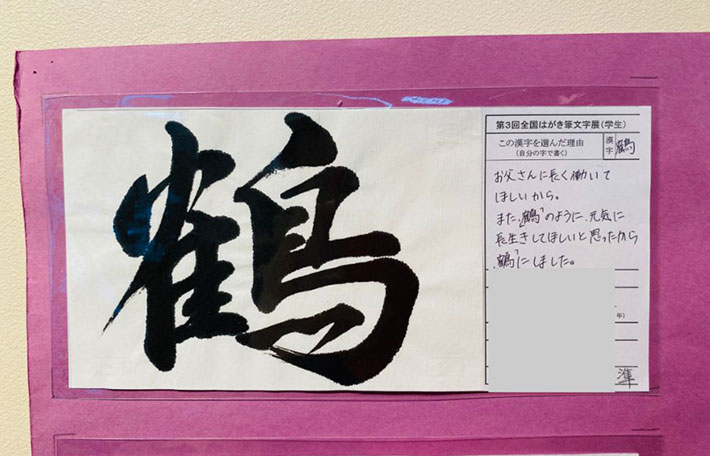 鶴
第3回全国はがき筆文字展(学生)
この漢字を選んだ理由
(自分の字で書く)
漢字
鶴
お父さんに長く働いて
ほしいから。
また、「鶴」のように、元気に
長生きしてほしいと思ったから
「鶴」にしました。
年)